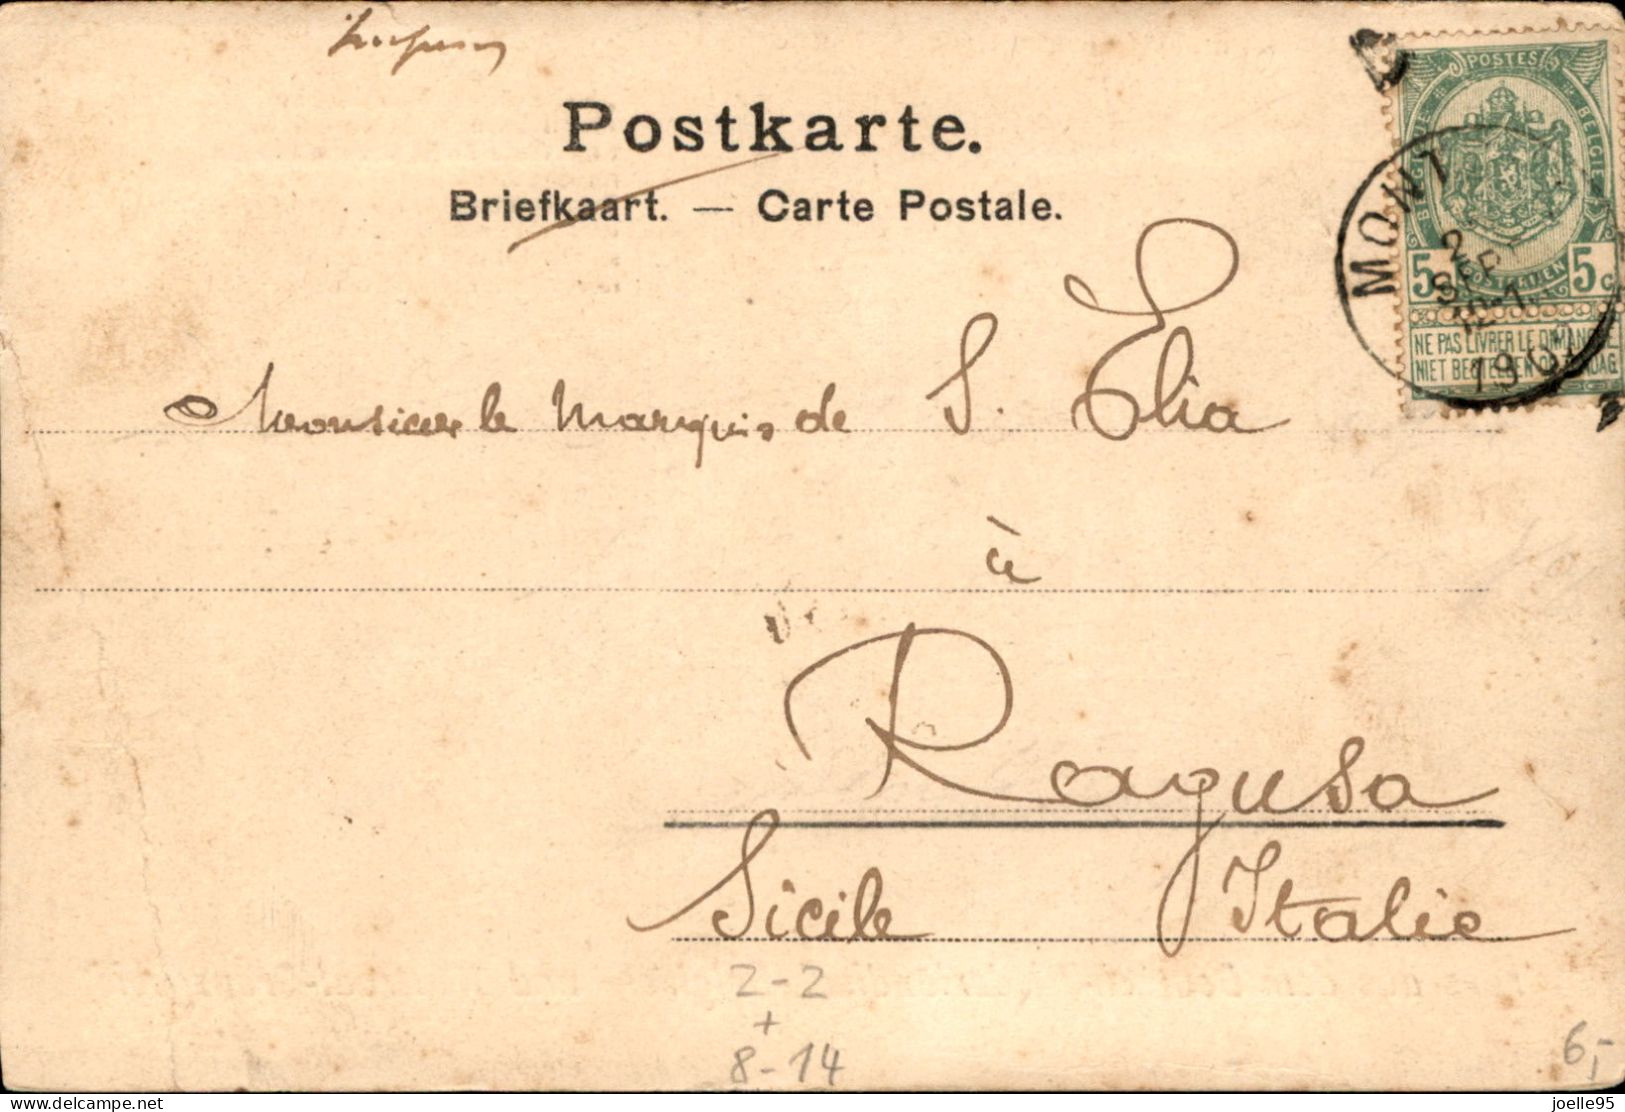 Postkarte.
Briefkaart. — Carte Postale.
POSTES
BELGIË
5 POSTERIJEN 5c
NE PAS LIVRER LE DIMANCHE
NIET BESTELLEN OP ZONDAG
MONT
2 SEP
12-1
190
Monsieur le Marquis de S. Elia
à
Ragusa
Sicile Italie
2-2
+
8-14
6,-
delcampe.net
joelle95